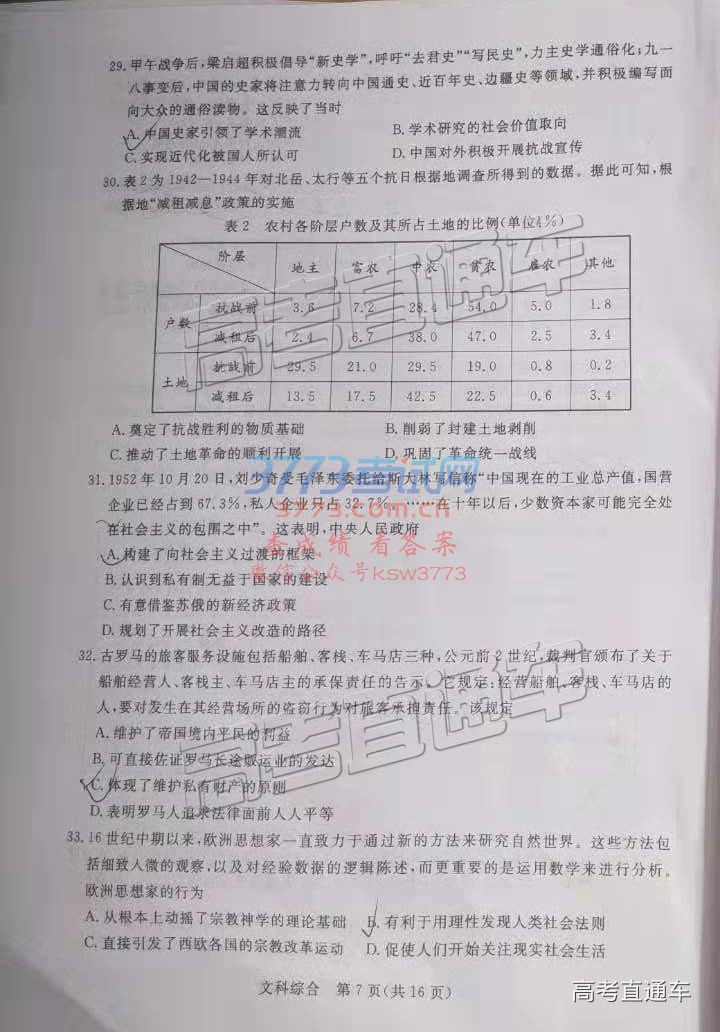 29.甲午战争后,梁启超积极倡导“新史学”,呼吁“去君史”“写民史”,力主史学通俗化;九一
八事变后,中国的史家将注意力转向中国通史、近百年史、边疆史等领域,并积极编写面
向大众的通俗读物。这反映了当时
A.中国史家引领了学术潮流 B.学术研究的社会价值取向
C.实现近代化被国人所认可 D.中国对外积极开展抗战宣传
30.表2为1942—1944年对北岳、太行等五个抗日根据地调查所得到的数据。据此可知,根
据地“减租减息”政策的实施
表2 农村各阶层户数及其所占土地的比例(单位:%)
阶层 地主 富农 中农 贫农 雇农 其他
户数 抗战前 3.6 7.2 28.4 54.0 5.0 1.8
减租后 2.4 6.7 38.0 47.0 2.5 3.4
土地 抗战前 29.5 21.0 29.5 19.0 0.8 0.2
减租后 13.5 17.5 42.5 22.5 0.6 3.4
A.奠定了抗战胜利的物质基础 B.削弱了封建土地剥削
C.推动了土地革命的顺利开展 D.巩固了革命统一战线
31.1952年10月20日,刘少奇受毛泽东委托给斯大林写信称“中国现在的工业总产值,国营
企业已经占到67.3%,私人企业只占32.7%。……在十年以后,少数资本家可能完全处
在社会主义的包围之中”。这表明,中央人民政府
A.构建了向社会主义过渡的框架
B.认识到私有制无益于国家的建设
C.有意借鉴苏俄的新经济政策
D.规划了开展社会主义改造的路径
32.古罗马的旅客服务设施包括船舶、客栈、车马店三种,公元前2世纪,裁判官颁布了关于
船舶经营人、客栈主、车马店主的承保责任的告示。它规定:经营船舶、客栈、车马店的
人,要对发生在其经营场所的盗窃行为对旅客承担责任。该规定
A.维护了帝国境内平民的利益
B.可直接佐证罗马长途贩运业的发达
C.体现了维护私有财产的原则
D.表明罗马人追求法律面前人人平等
33.16世纪中期以来,欧洲思想家一直致力于通过新的方法来研究自然世界。这些方法包
括细致入微的观察,以及对经验数据的逻辑陈述,而更重要的是运用数学来进行分析。
欧洲思想家的行为
A.从根本上动摇了宗教神学的理论基础 B.有利于用理性发现人类社会法则
C.直接引发了西欧各国的宗教改革运动 D.促使人们开始关注现实社会生活
文科综合 第7页(共16页)
高考直通车
高考直通车
3773考试网
3773.com.cn
查成绩 看答案
微信公众号ksw3773
高考直通车